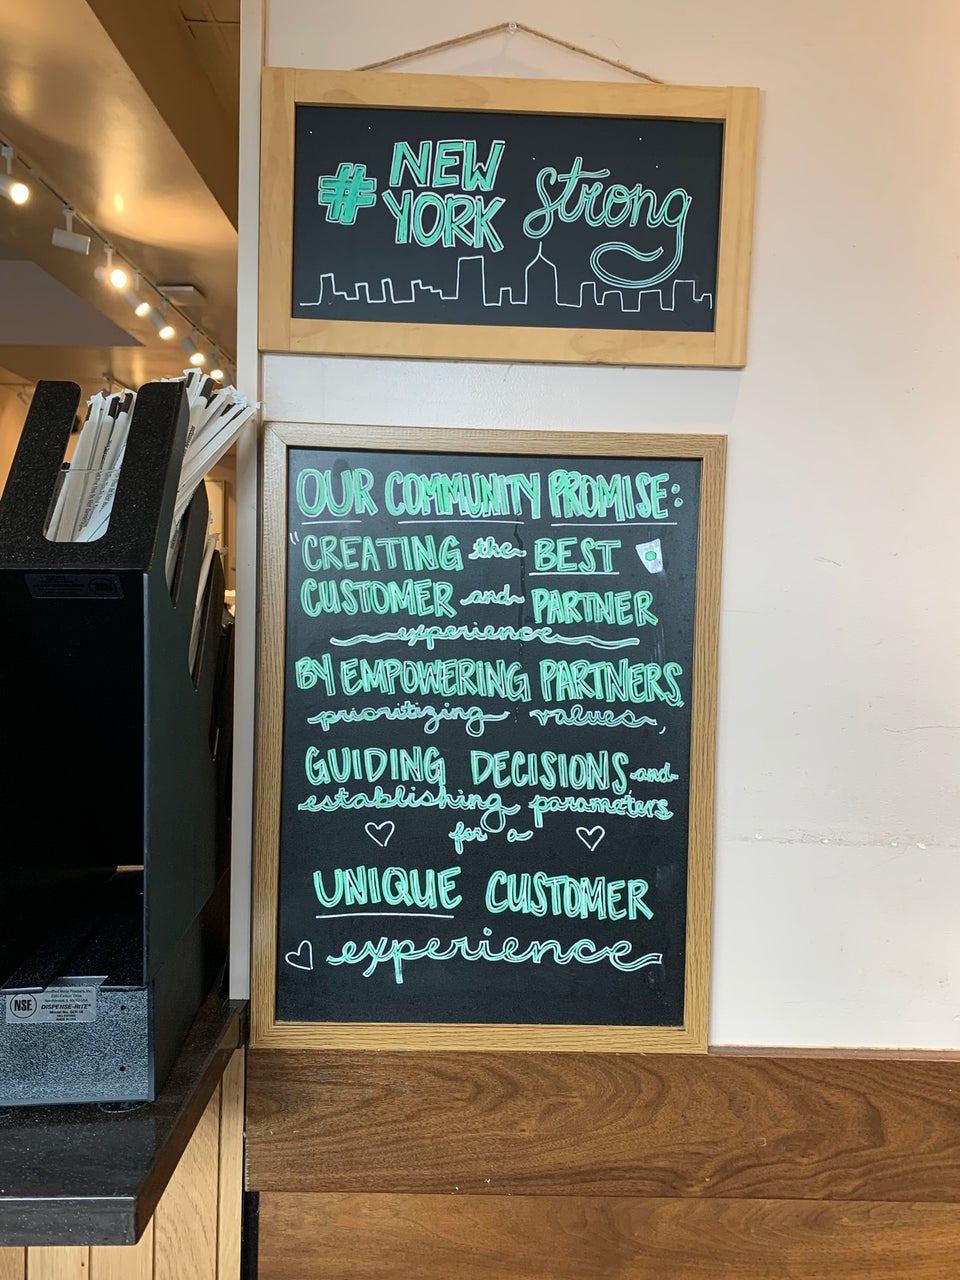 # NEW YORK strong
OUR COMMUNITY PROMISE:
"CREATING the BEST
CUSTOMER and PARTNER
experience
BY EMPOWERING PARTNERS,
prioritizing values,
GUIDING DECISIONS and
establishing parameters
for a
UNIQUE CUSTOMER
experience
NSF
DISPENSE-RITE